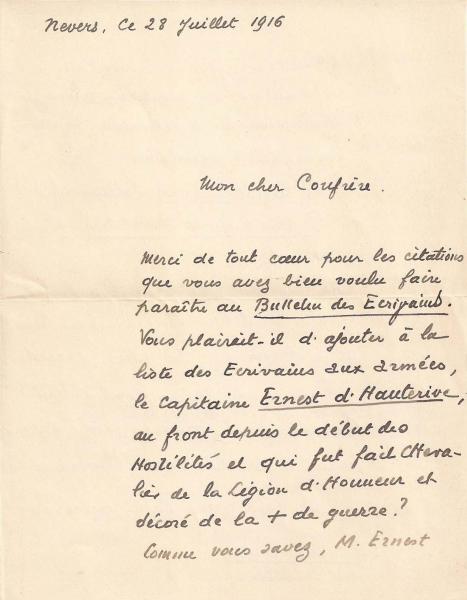 Nevers, Ce 28 Juillet 1916
Mon cher Confrère.
Merci de tout cœur pour les citations
que vous avez bien voulu faire
paraître au Bulletin des Ecrivains.
Vous plairait-il d'ajouter à la
liste des Ecrivains aux armées,
le Capitaine Ernest d'Hauterive,
au front depuis le début des
Hostilités et qui fut fait Cheva-
lier de la Légion d'Honneur et
décoré de la + de guerre ?
Comme vous savez, M. Ernest